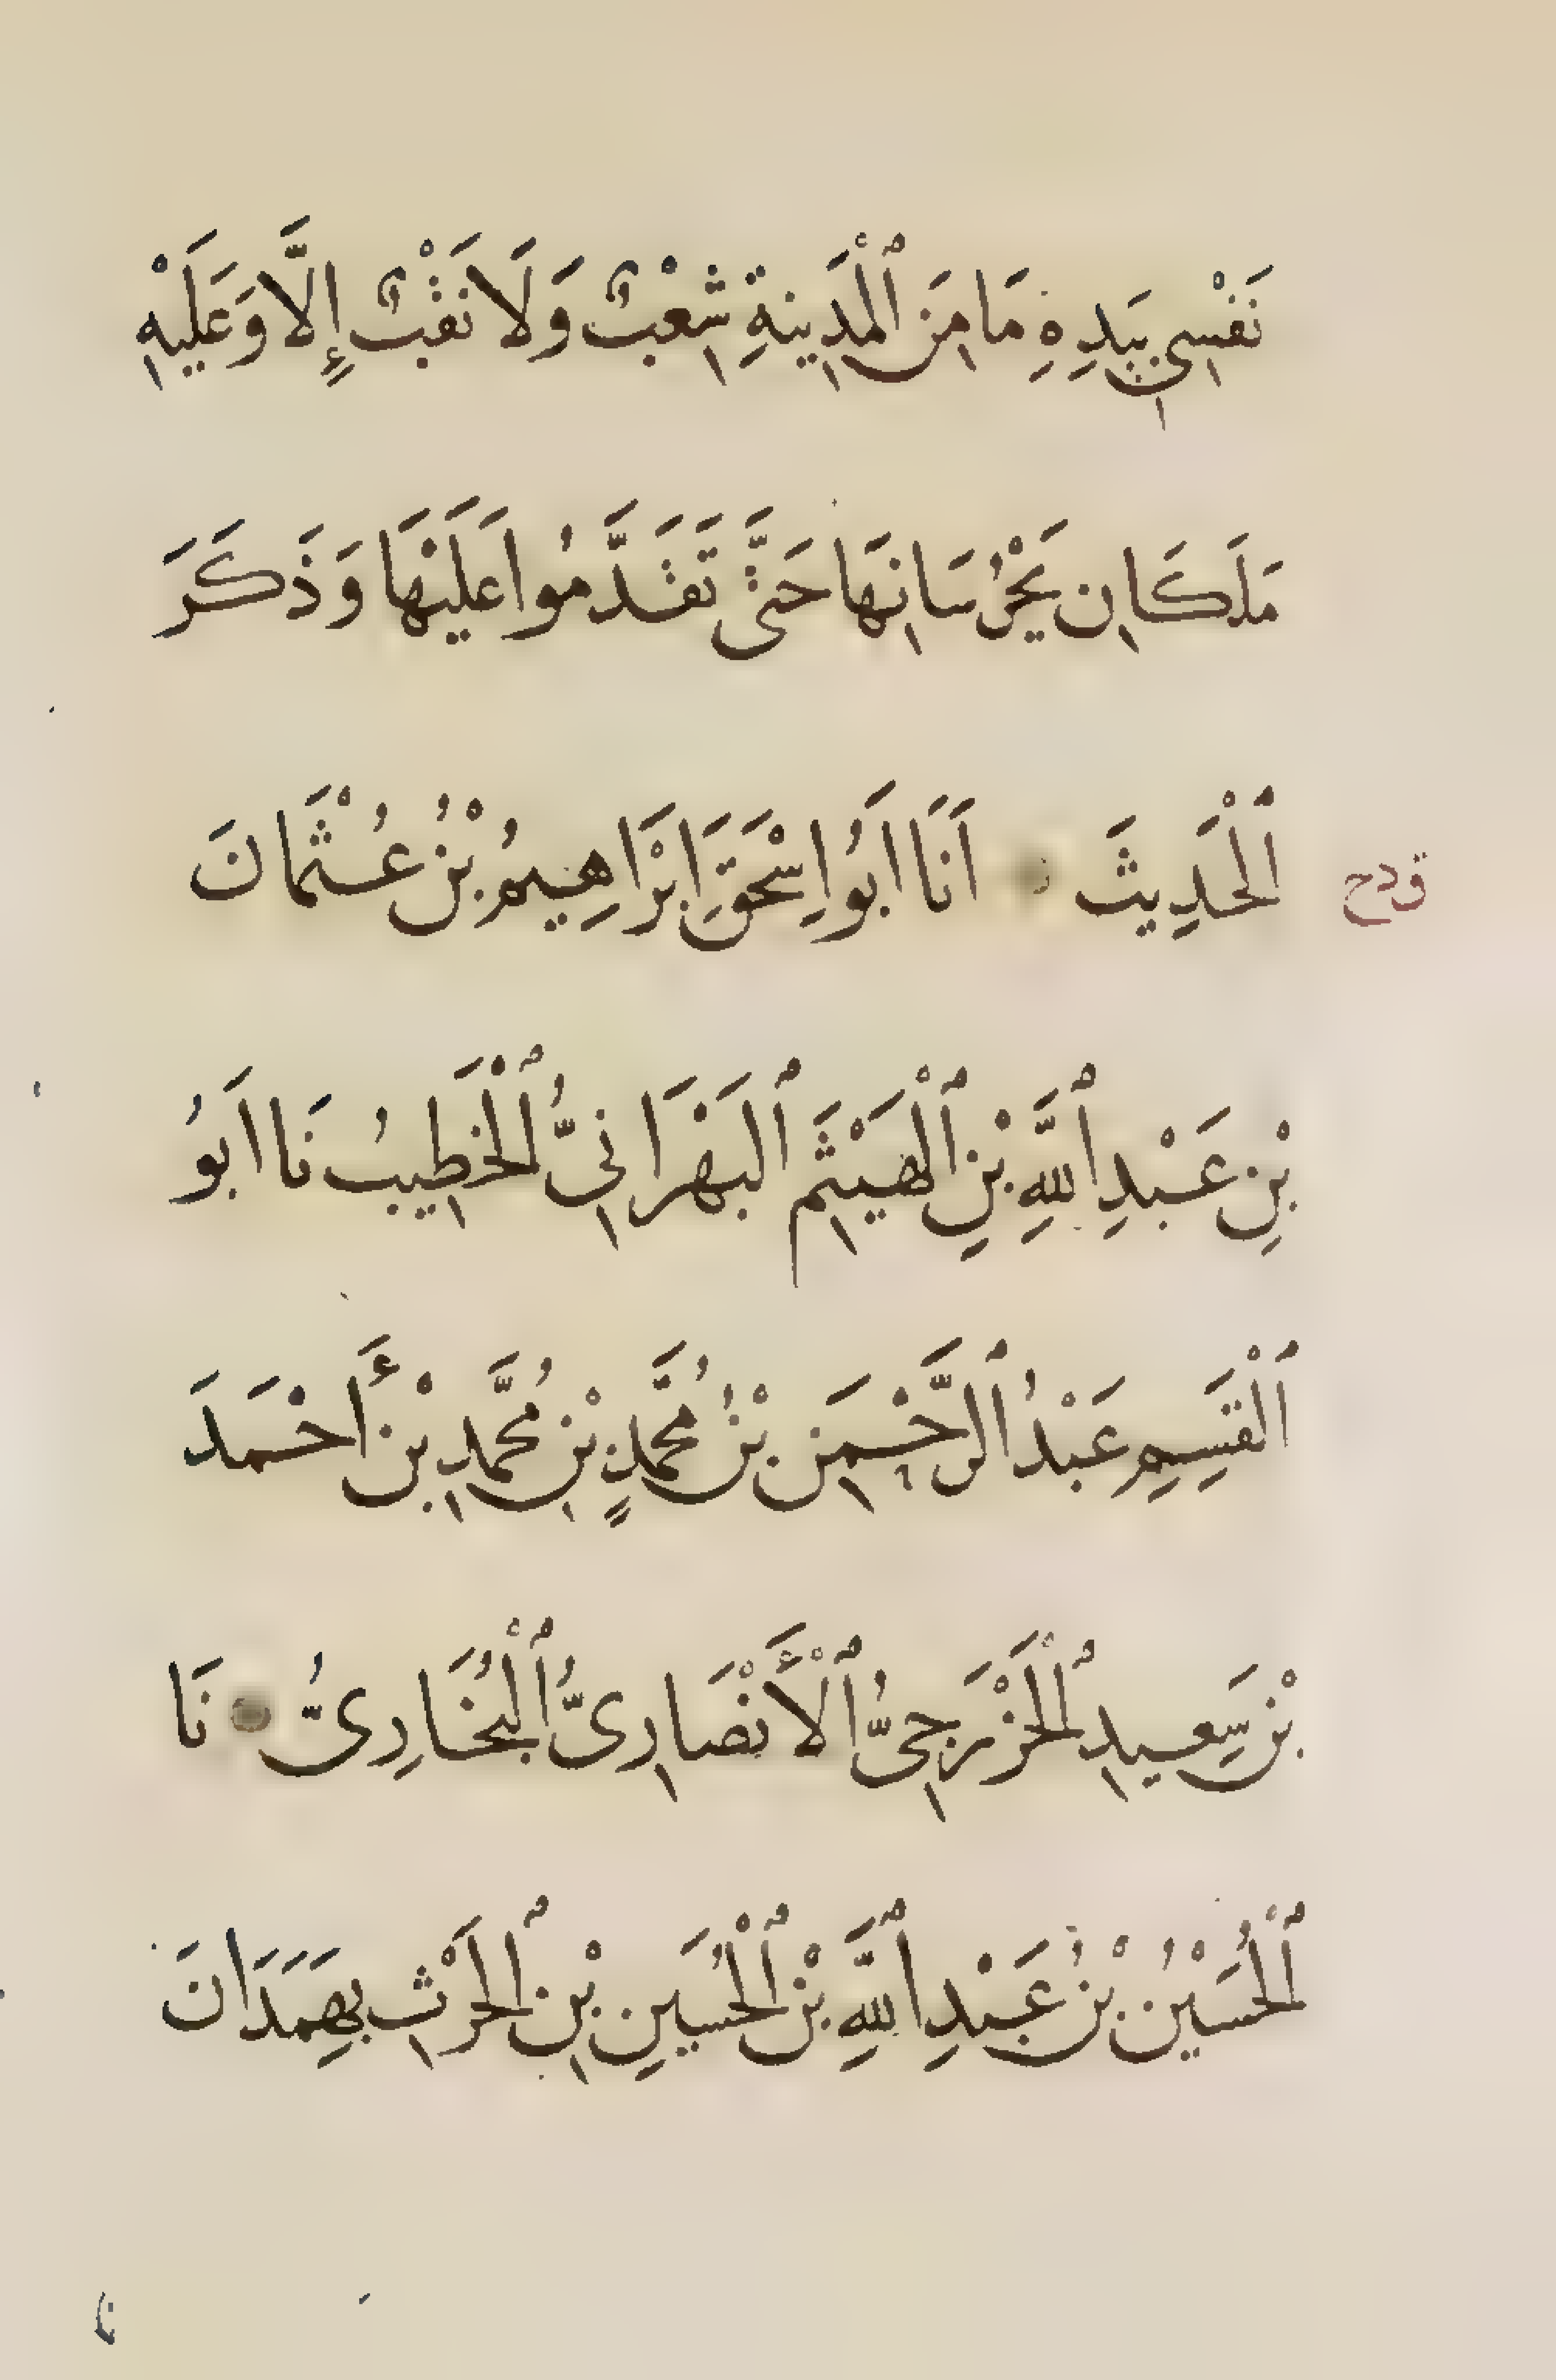 نَفْسِي بِيَدِهِ مَا مِنَ ٱلْمَدِينَةِ شِعْبٌ وَلَا نَقْبٌ إِلَّا وَعَلَيْهِ
مَلَكَانِ يَحْرُسَانِهَا حَتَّى تَقَدَّمُوا عَلَيْهَا وَذَكَرَ
ٱلْحَدِيثَ اَنَا اَبُو اِسْحَقَ اِبْرَاهِيمُ بْنُ عُثْمَانَ
بْنِ عَبْدِ ٱللَّهِ بْنِ ٱلْهَيْثَمِ ٱلبَهْرَانِيُّ ٱلْخَطِيبُ نَا اَبُو
ٱلْقَسِمِ عَبْدُ ٱلرَّحْمَنِ بْنُ مُحَمَّدِ بْنِ مُحَمَّدِ بْنِ أَحْمَدَ
بْنِ سَعِيدِ ٱلْخَزْرَجِيُّ ٱلْأَنْصَارِيُّ ٱلْبُخَارِيُّ نَا
ٱلْحُسَيْنُ بْنُ عَبْدِ ٱللَّهِ بْنِ ٱلْحُسَيْنِ بْنِ ٱلْحَرْثِ بِهَمَدَانَ